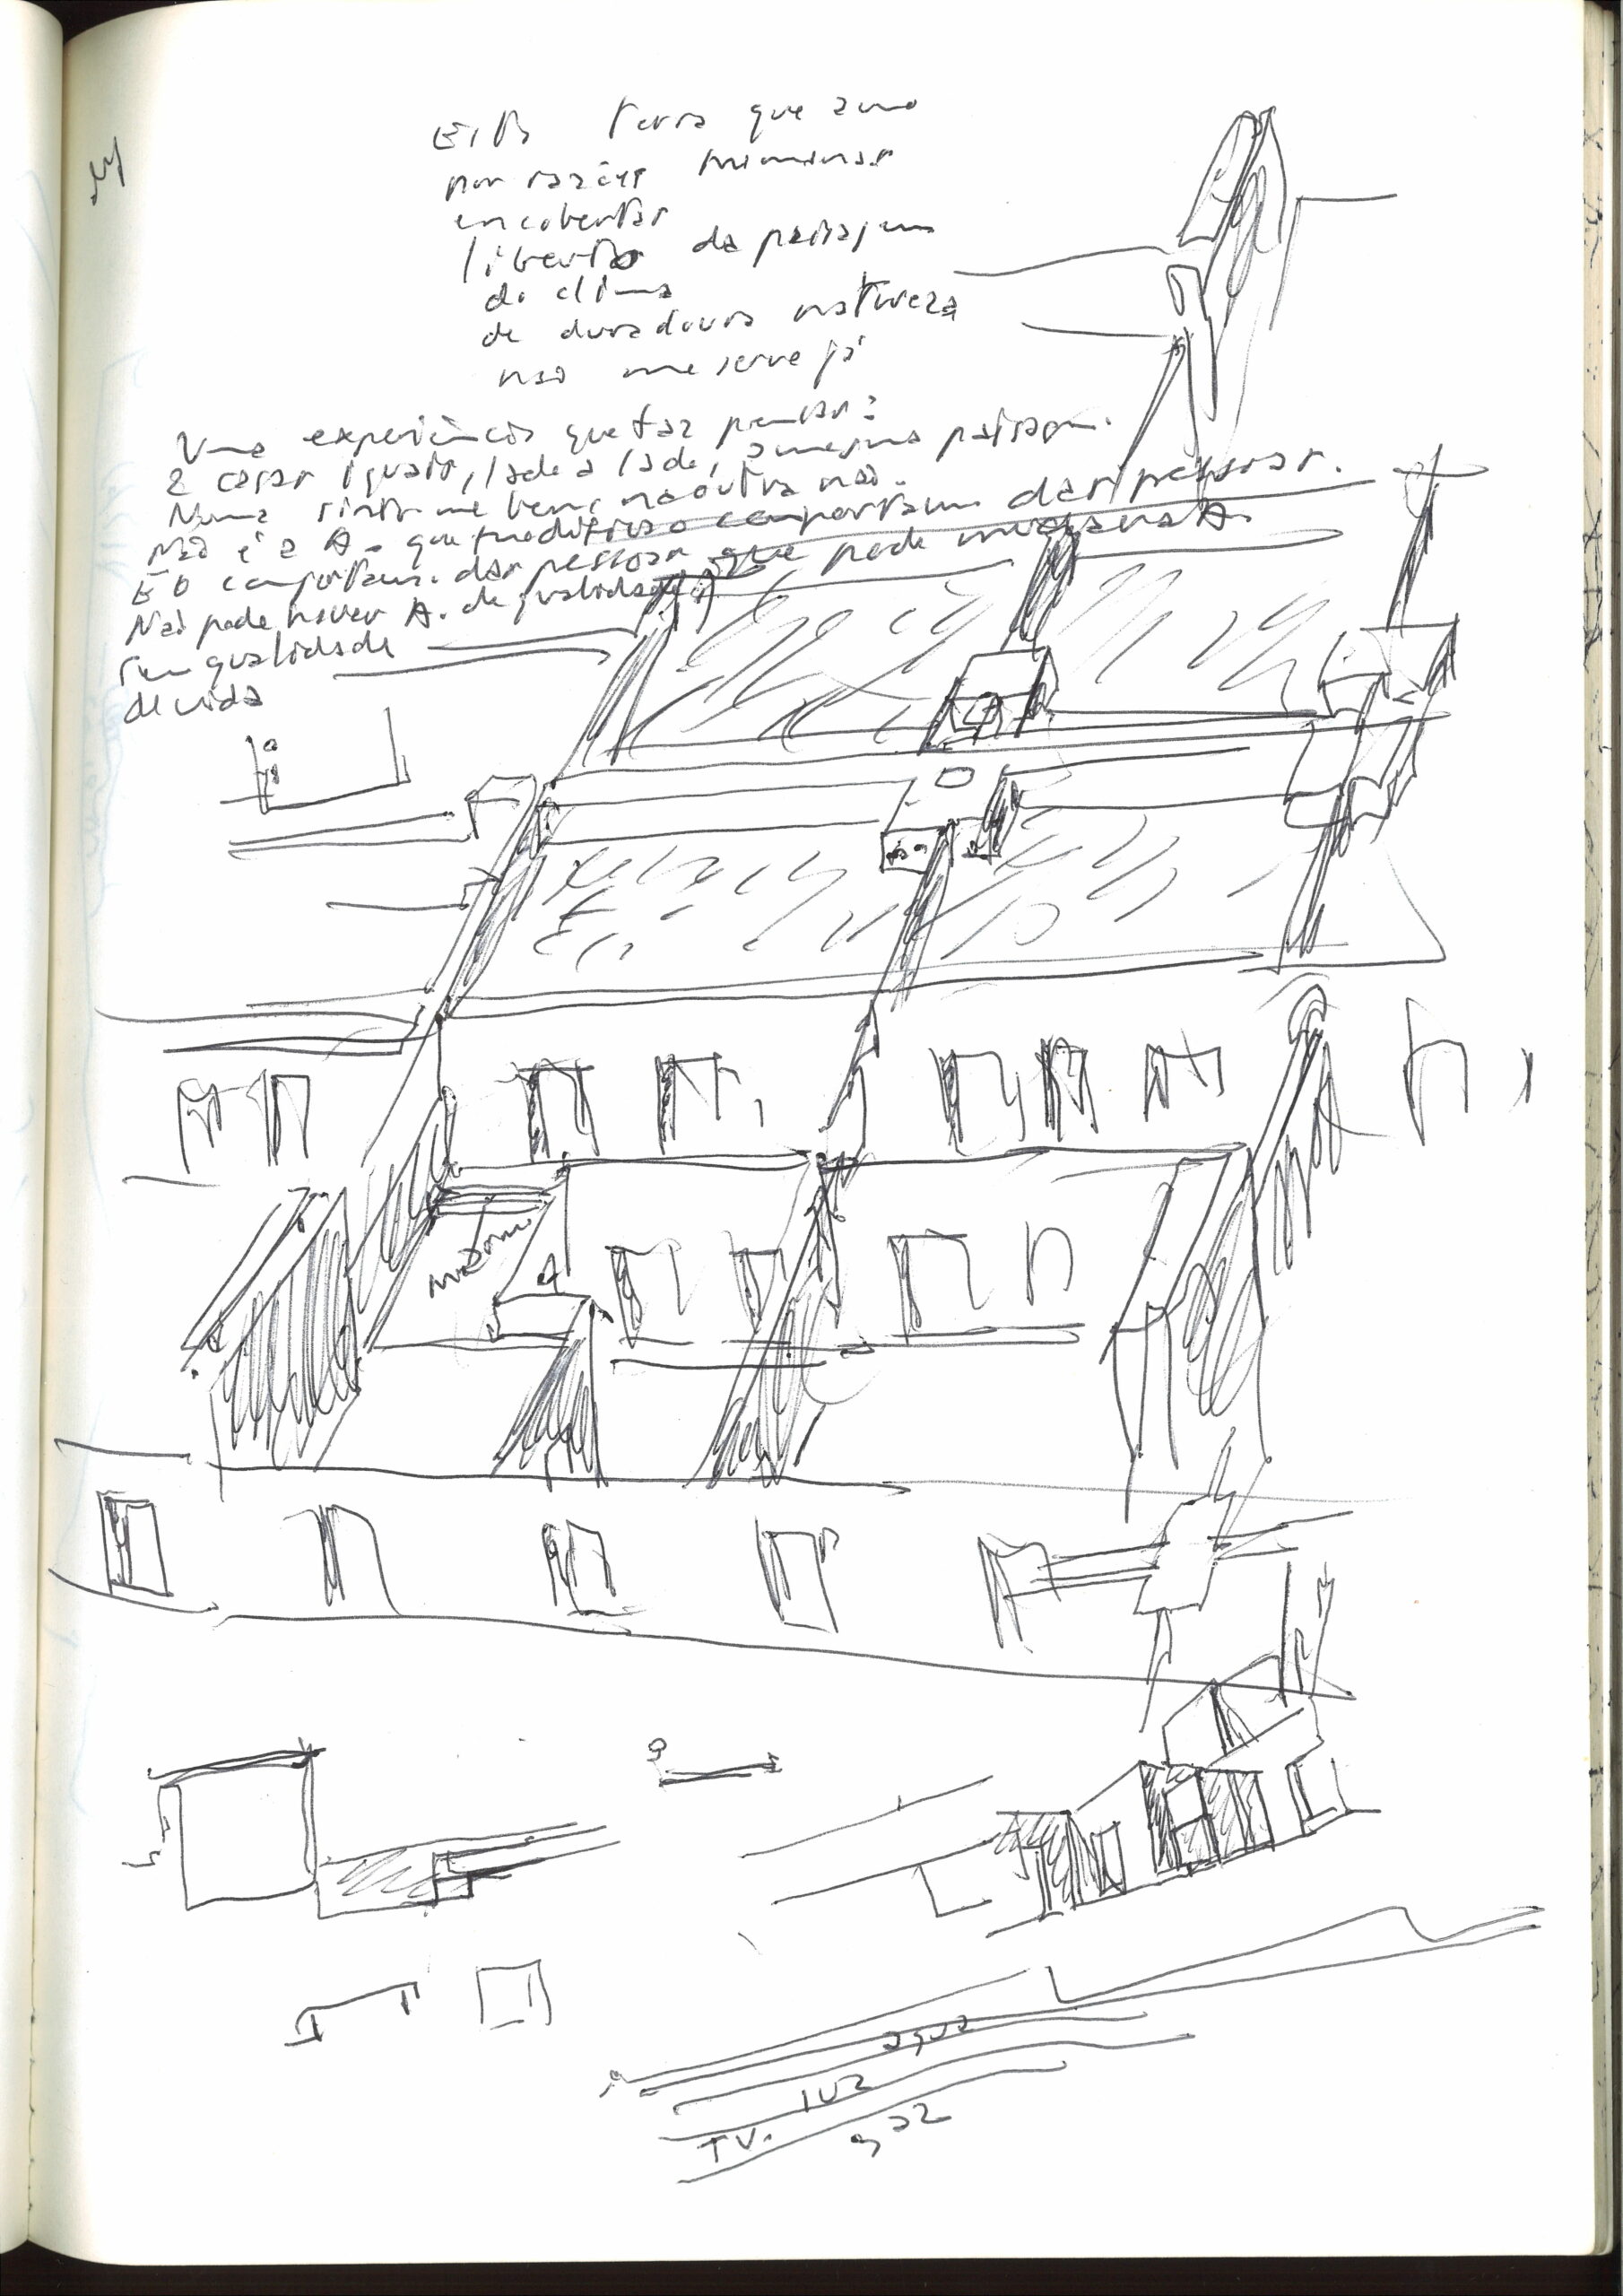 Esta terra que amo
por razões mínimas
encobertas
liberto da paisagem
do clima
de duradoura natureza
não me serve já
Uma experiência que faz pensar:
2 casas iguais, lado a lado, a mesma paisagem.
Numa sinto-me bem, na outra não.
Não é a A. que modifica o comportam. das pessoas.
É o comportam. das pessoas que pode mudar a A.
Não pode haver A. de qualidade
sem qualidade
de vida
agua
luz
TV.
gaz